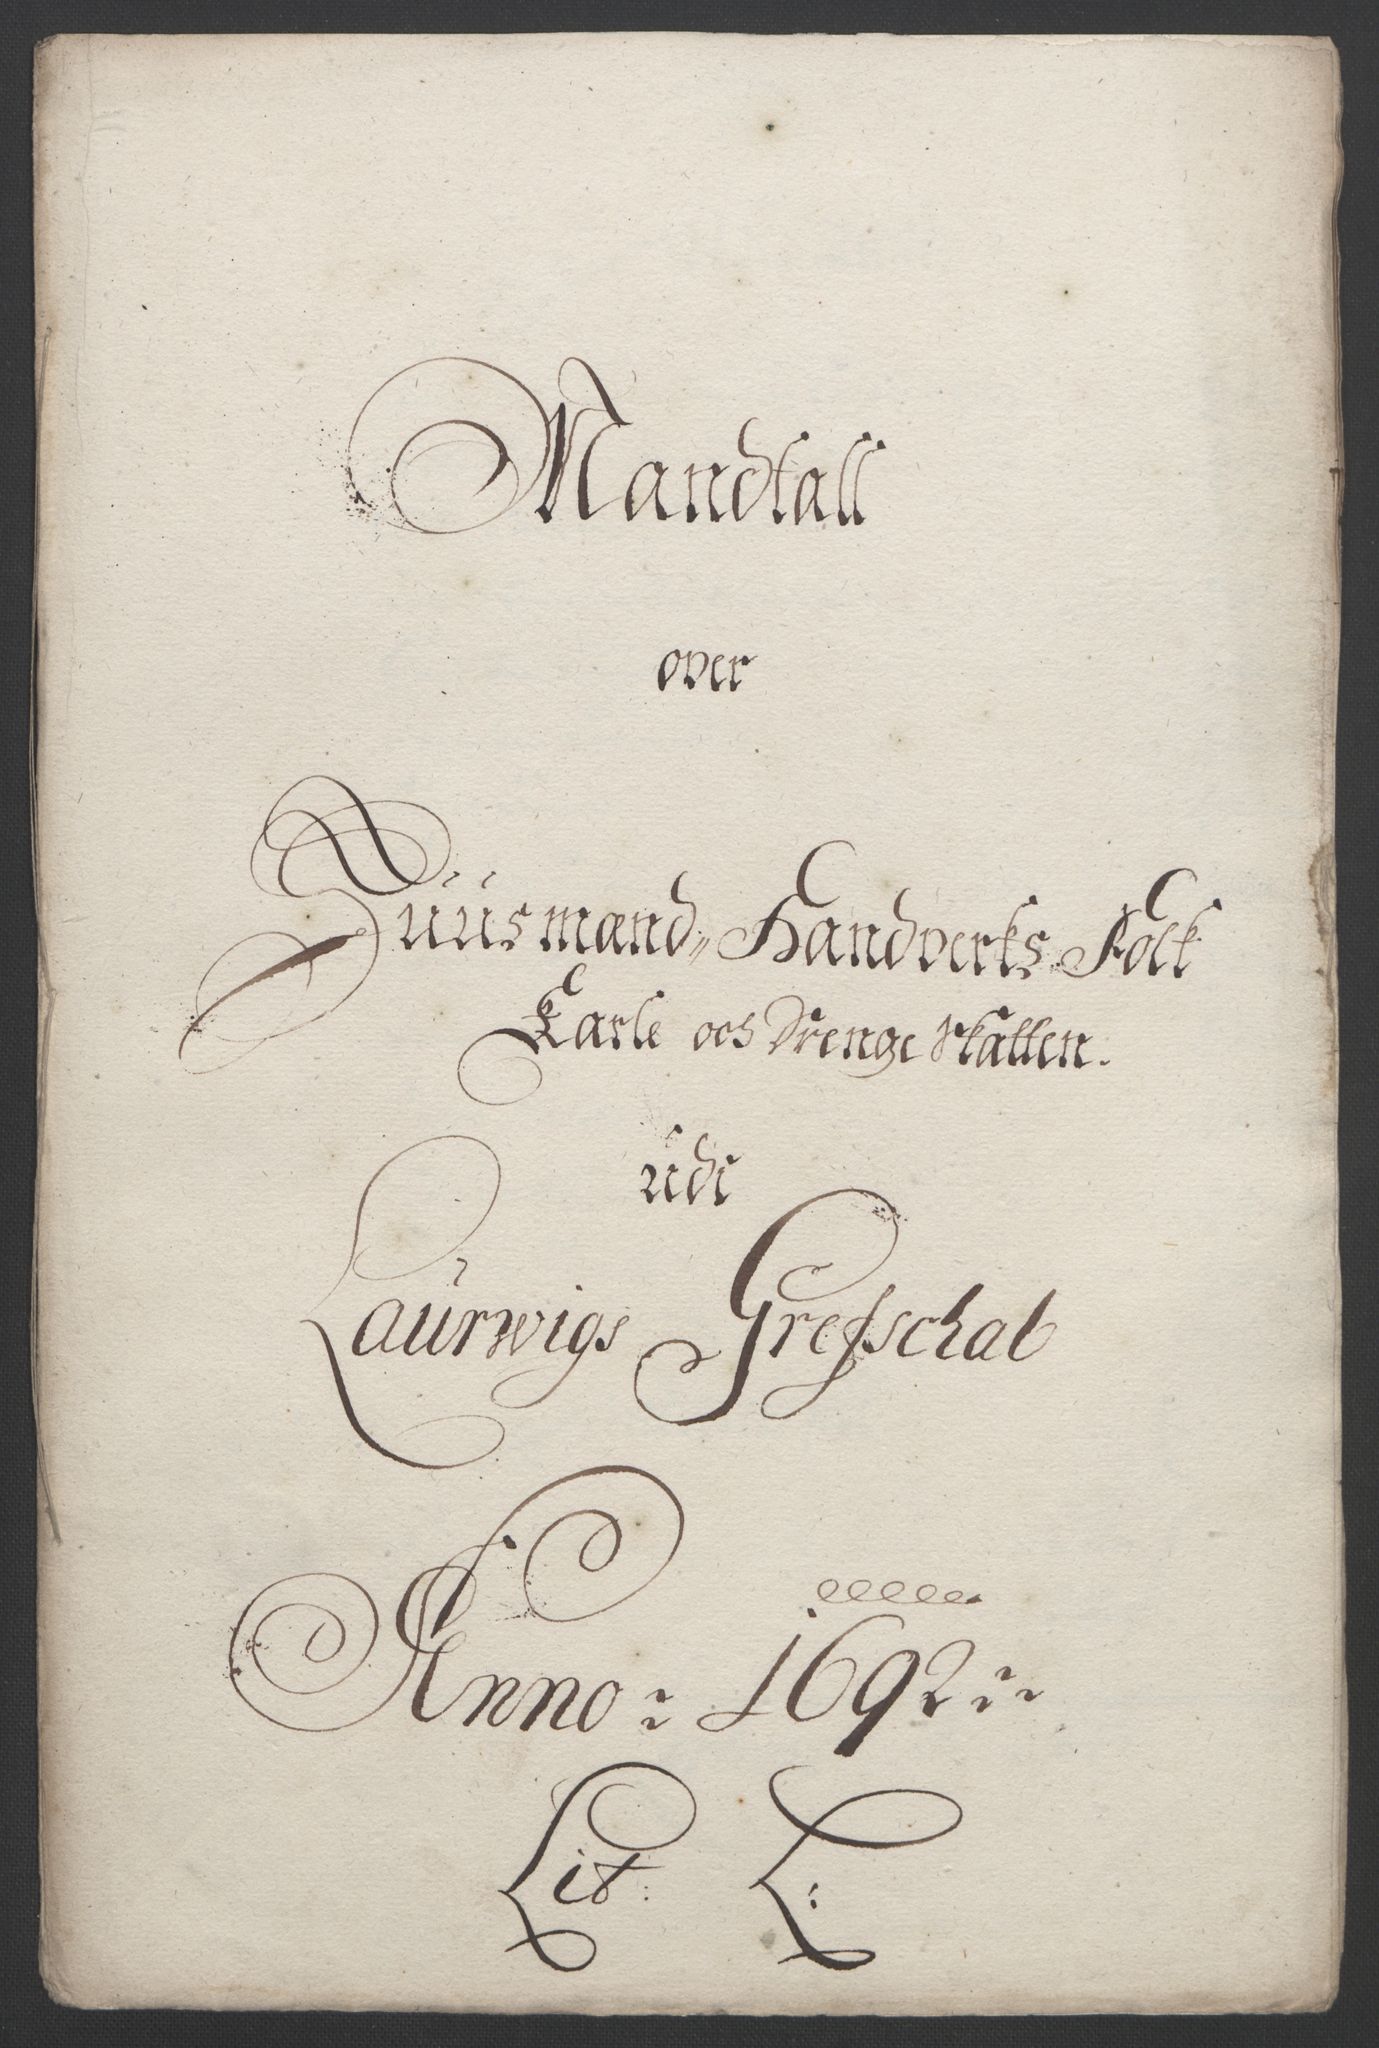 Mandtall
over
Huusmænd, Handverks Folk
Karle och Drenge skatten.
udi
Laurwigs Grefschab
Anno: 1692::
Lit: L: